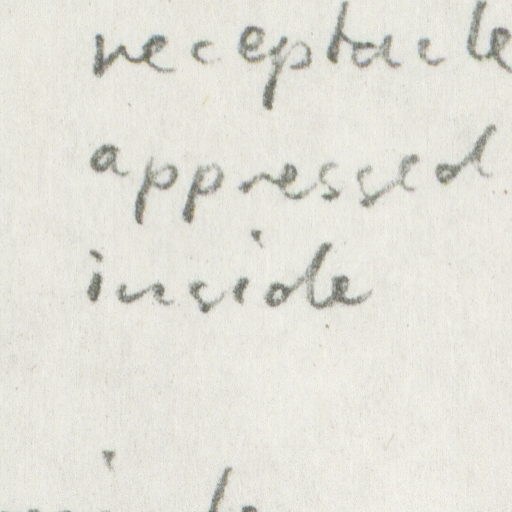 receptacle
appressed
inside